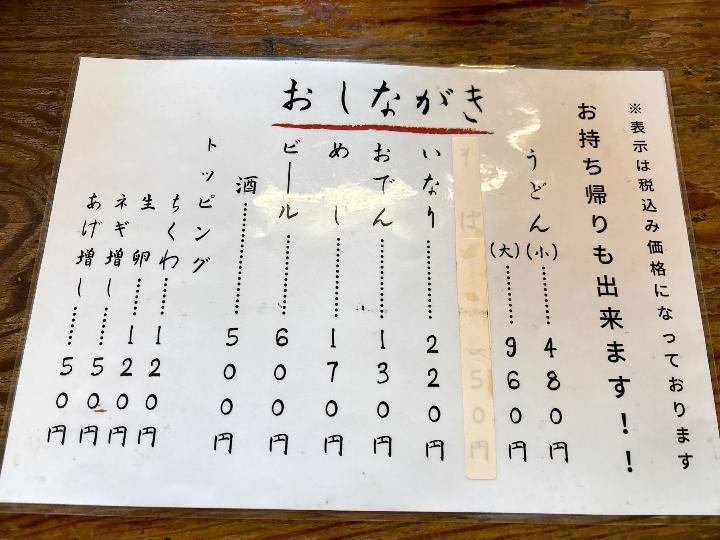 おしながき
※表示は税込み価格になっております
お持ち帰りも出来ます!!
うどん(小)………480円
(大)………960円
そば
いなり………220円
おでん………130円
めし………170円
ビール………600円
酒………500円
トッピング
ちくわ……120円
生卵……120円
ネギ増し……50円
あげ増し……50円